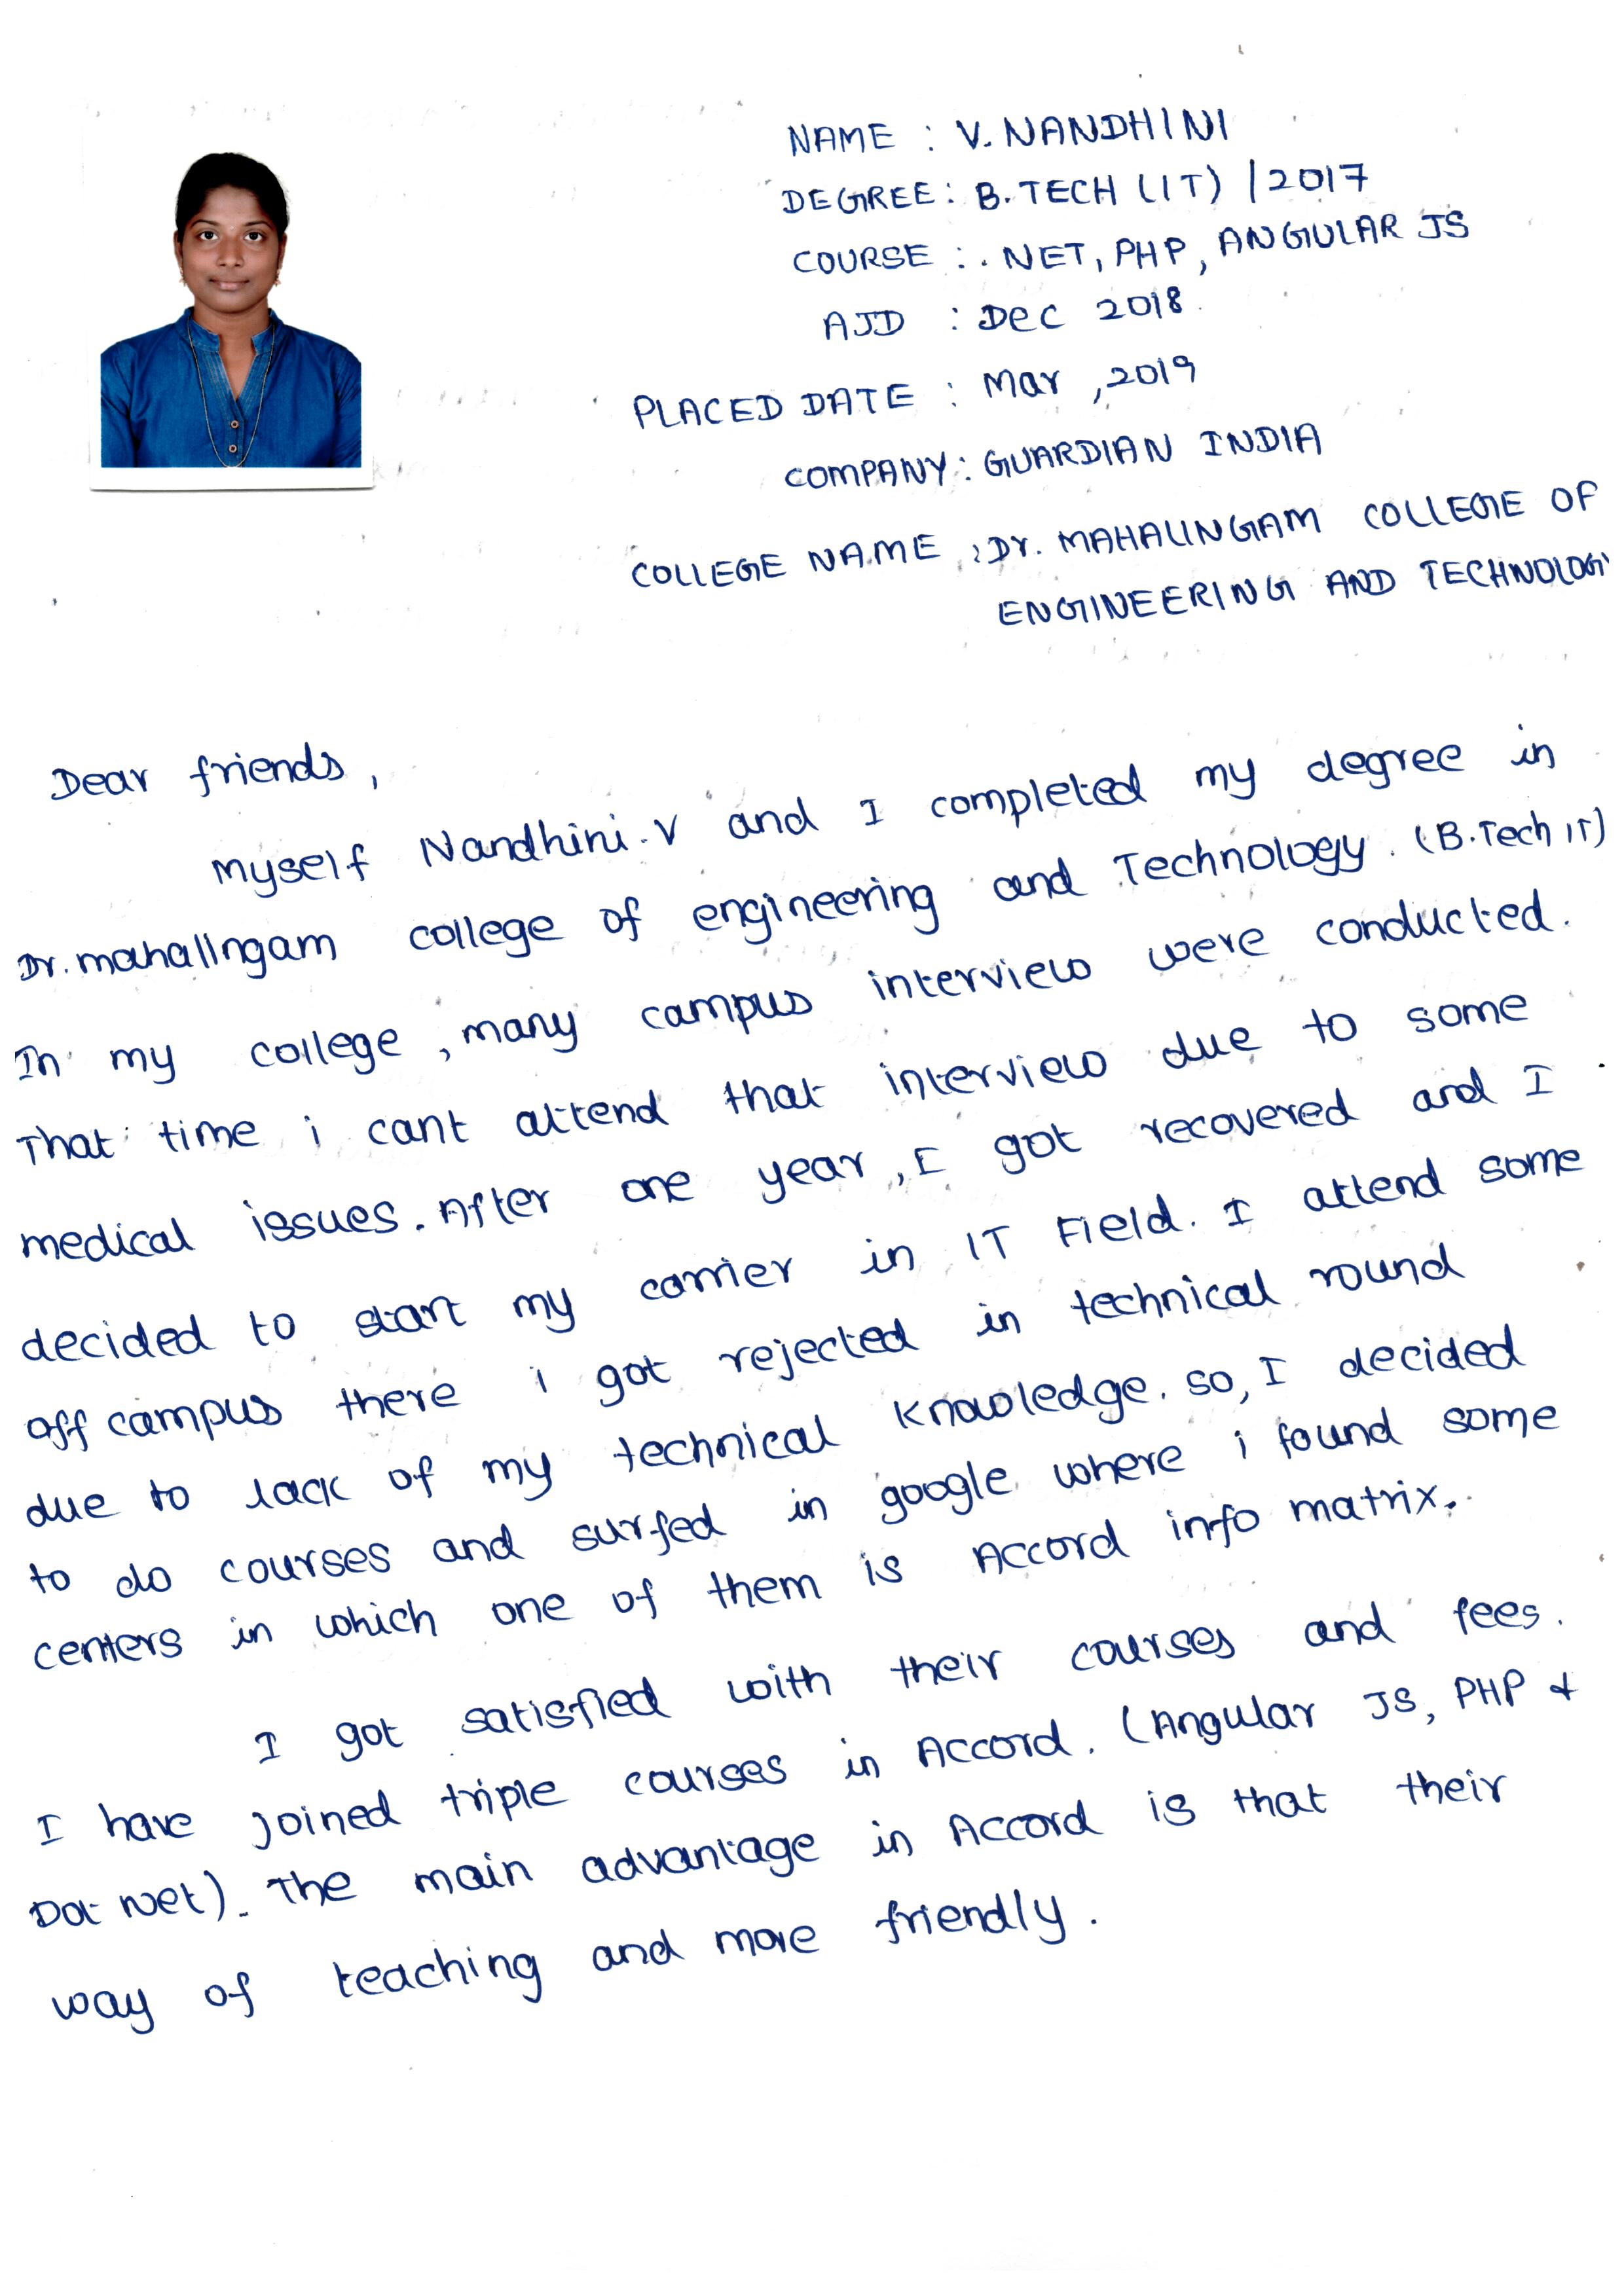 NAME : V. NANDHINI
DEGREE : B. TECH (IT) / 2017
COURSE : . NET, PHP, ANGULAR JS
AJD : Dec 2018
PLACED DATE : Mar , 2019
COMPANY : GUARDIAN INDIA
COLLEGE NAME : Dr. MAHALINGAM COLLEGE OF
ENGINEERING AND TECHNOLOGY
Dear friends ,
Myself Nandhini.V and I completed my degree in
Dr. mahalingam college of engineering and Technology. (B.Tech IT)
In my college , many campus interview were conducted.
That time i cant attend that interview due to some
medical issues. After one year , I got recovered and I
decided to start my carrier in IT Field. I attend some
off campus there i got rejected in technical round
due to lack of my technical knowledge. so, I decided
to do courses and surfed in google where i found some
centers in which one of them is Accord info matrix.
I got satisfied with their courses and fees.
I have joined triple courses in Accord. (Angular JS, PHP &
Dot Net). The main advantage in Accord is that their
way of teaching and more friendly.